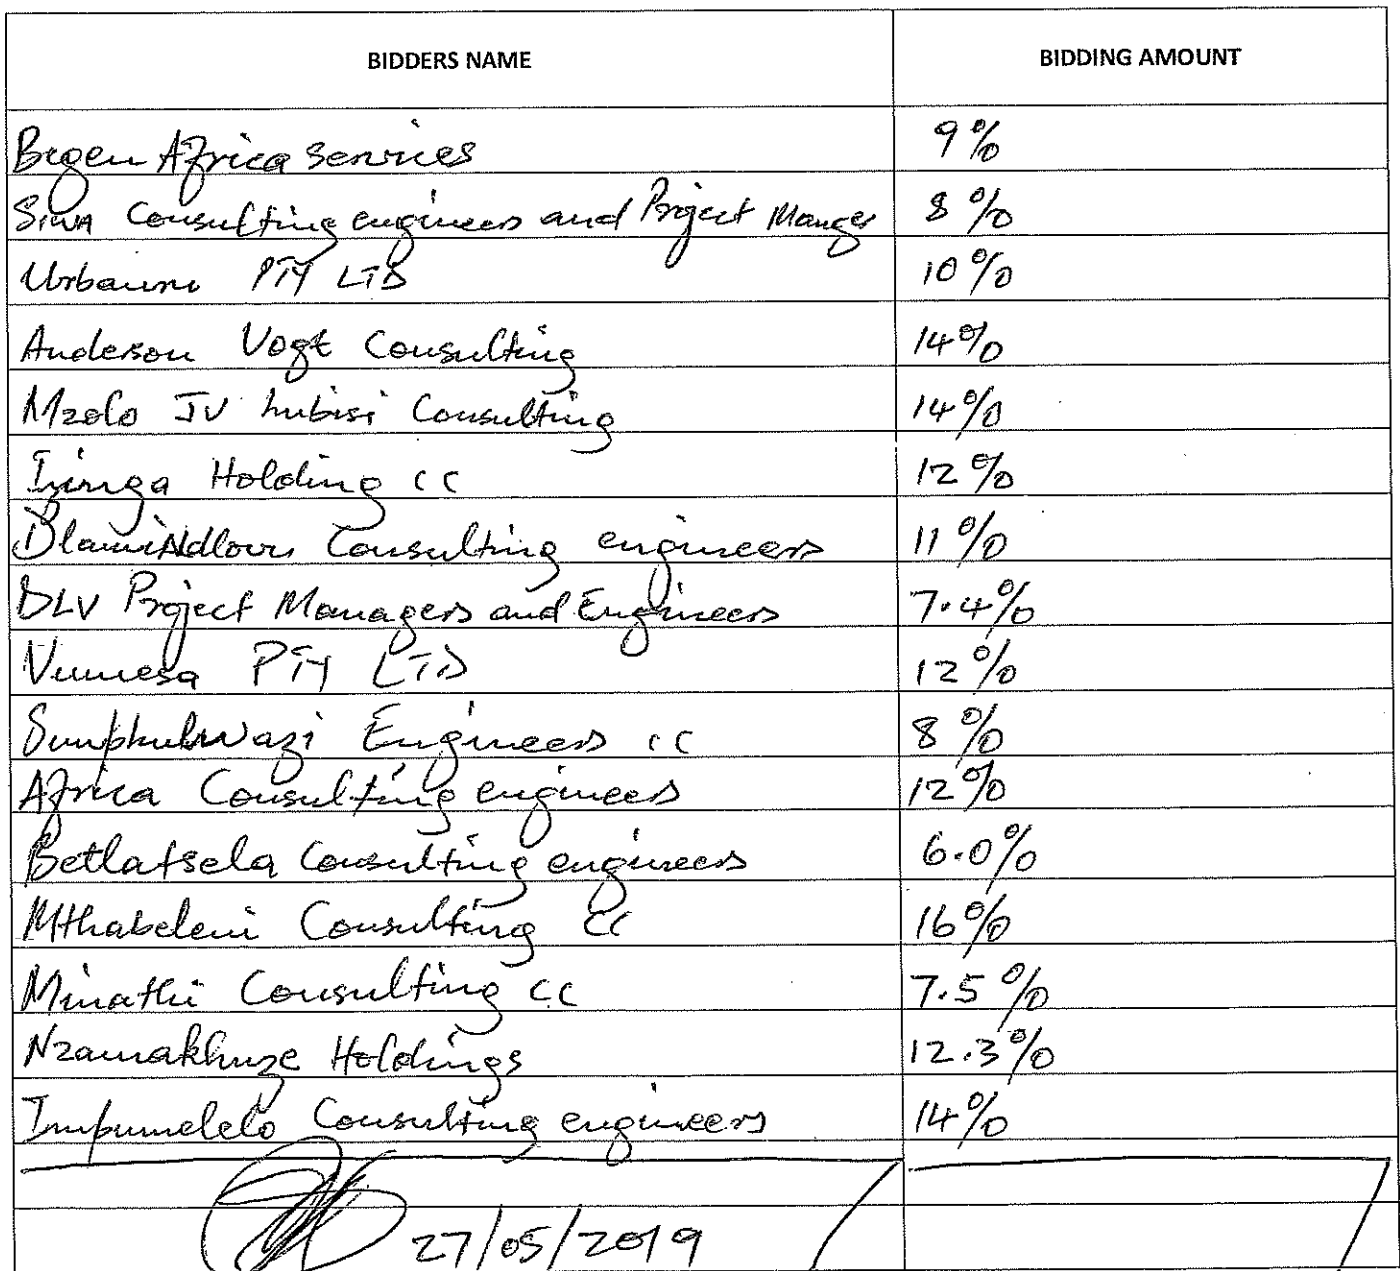 BIDDERS NAME BIDDING AMOUNT
Begen Africa Services 9%
SIWA Consulting engineers and Project Manges 8%
Urbanru PTY LTD 10%
Anderson Vogt Consulting 14%
Mzolo JV hubisi Consulting 14%
Iringa Holding CC 12%
DlamiNdlovu Consulting engineers 11%
DLV Project Managers and Engineers 7.4%
Vumesa PTY LTD 12%
Sumphulwazi Engineers CC 8%
Africa Consulting engineers 12%
Betlafsela Consulting engineers 6.0%
Mthabeleni Consulting CC 16%
Minathi Consulting CC 7.5%
Nzamakhuze Holdings 12.3%
Impumelelo Consulting engineers 14%
27/05/2019